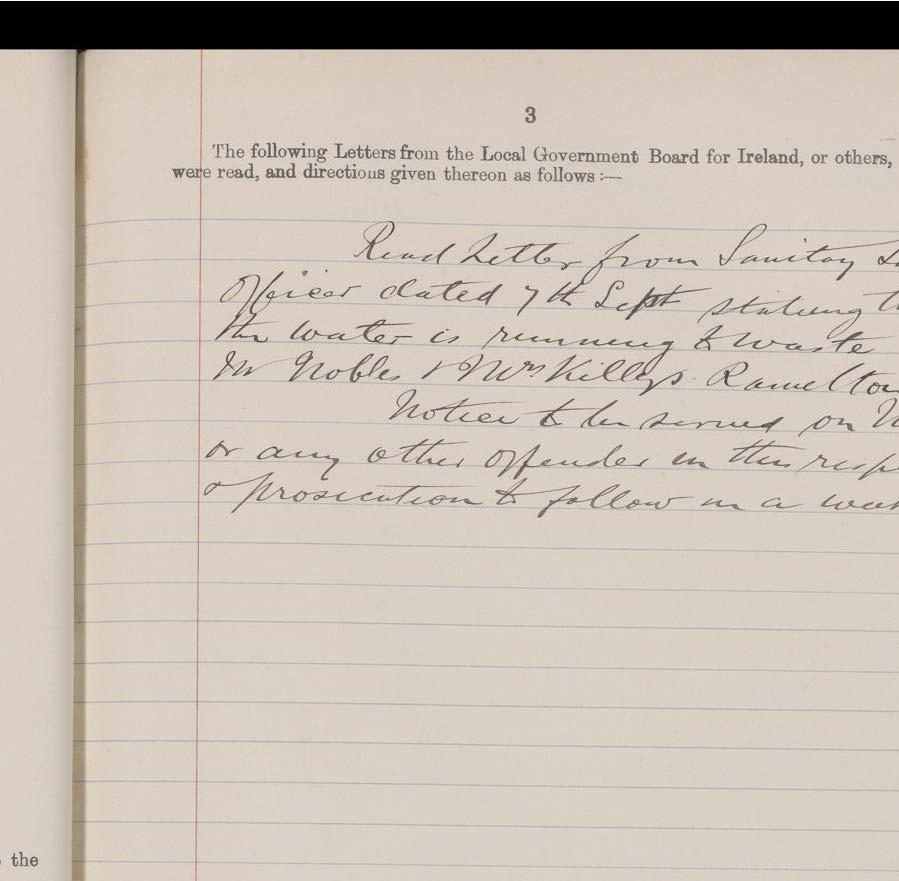 3
The following Letters from the Local Government Board for Ireland, or others,
were read, and directions given thereon as follows :—
Read Letter from Sanitary
Officer dated 7th Sept stating
the water is running to waste
Mr Nobles & Mrs Killys. Ramelton
Notice to be served on
or any other offender in this resp
& prosecution to follow in a week
the